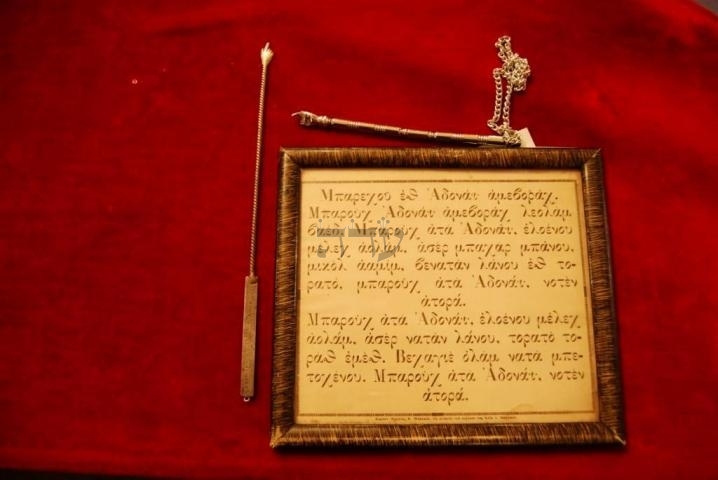 Μπαρεχοῦ ἐθ Ἀδονάϊ ἀμεβοράχ.
Μπαροὺχ Ἀδονάϊ ἀμεβοράχ λεολάμ
βαέδ. Μπαροὺχ ἀτα Ἀδονάϊ, ἐλοένου
μέλεχ ἀολάμ, ἀσέρ μπαχάρ μπάνου,
μικόλ ἀαμίμ, βενατάν λάνου ἐθ το-
ρατό, μπαροὺχ ἀτα Ἀδονάϊ, νοτέν
ἀτορά.
Μπαροὺχ ἀτα Ἀδονάϊ, ἐλοένου μέλεχ
ἀολάμ, ἀσέρ νατάν λάνου, τορατό το-
ράθ ἐμέθ. Βεχαγιὲ ὀλάμ νατά μπε-
τοχένου. Μπαροὺχ ἀτα Ἀδονάϊ, νοτέν
ἀτορά.